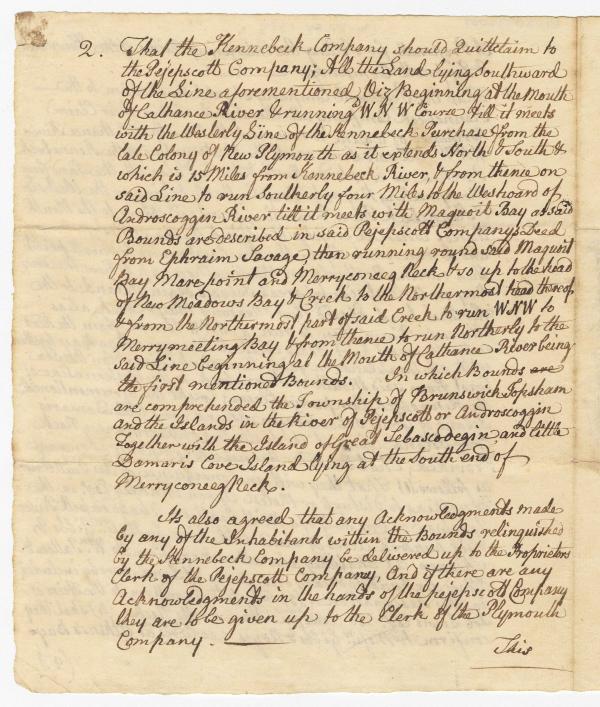 2. That the Kennebeck Company should Quittclaim to
the Pejepscott Company; All the Land lying Southward
of the Line aforementioned Viz Beginning at the Mouth
of Cathance River & running WNW Course till it meets
with the Westerly Line of the Kennebeck Purchase from the
late Colony of New Plymouth as it extends North & South &
which is 15 Miles from Kennebeck River, & from thence on
said Line to run Southerly four Miles to the Westward of
Androscoggin River till it meets with Maquoit Bay as said
Bounds are described in said Pejepscott Company's Deed
from Ephraim Savage, then running round said Maquoit
Bay Mare point and Merryconeeg Neck & so up to the head
of New Meadows Bay & Creek to the Northermost head thereof
& from the Northermost part of said Creek to run WNW to
Merrymeeting Bay & from thence to run Northerly to the
said Line beginning at the Mouth of Cathance River being
the first mentioned Bounds. In which Bounds are
are comprehended the Township of Brunswick Topsham
and the Islands in the River of Pejepscott or Androscoggin
Together with the Island of Great Sebascodegin and little
Damaris Cove Island lying at the South end of
Merryconeeg Neck.
Its also agreed that any Acknowledgments made
by any of the Inhabitants within the Bounds relinquished
by the Kennebeck Company be delivered up to the Proprietors
Clerk of the Pejepscott Company, And if there are any
Acknowledgments in the hands of the pejepscott Company
they are to be given up to the Clerk of the Plymouth
Company.
This